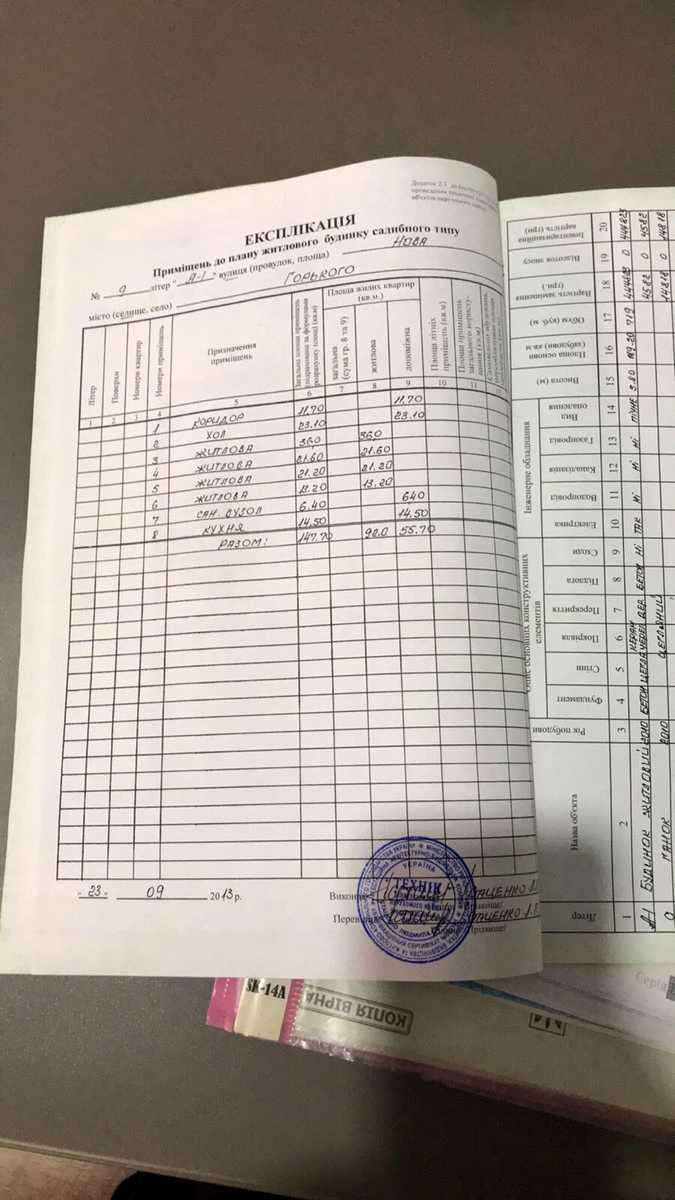 Додаток 2.1
ЕКСПЛІКАЦІЯ
Приміщень до плану житлового будинку садибного типу
№ 9 літер "А-І" вулиця (провулок, площа) НОВА
місто (селище, село) ГОРЬКОГО
Літер
Поверхи
Номери квартир
Номери приміщень
Призначення приміщень
Загальна площа приміщень підрахована за формулами розрахунку площ (кв.м)
Площа жилих квартир (кв.м.)
загальна (сума гр. 8 та 9)
житлова
допоміжна
Площа літніх приміщень (кв.м)
Площа приміщень загального користування (кв.м)
1 2 3 4 5 6 7 8 9 10 11
1 КОРИДОР 11.70 11.70
2 ХОЛ 23.10 23.10
3 ЖИТЛОВА 36.0 36.0
4 ЖИТЛОВА 21.60 21.60
5 ЖИТЛОВА 21.20 21.20
6 ЖИТЛОВА 13.20 13.20
7 САН. ВУЗОЛ 6.40 6.40
8 КУХНЯ 14.50 14.50
РАЗОМ: 147.70 92.0 55.70
"23" 09 2013 р.
Виконав
Перевірив
УКРАЇНА
ТЕХНІК
Літер
Назва об'єкта
Рік побудови
Опис основних конструктивних елементів
Фундамент
Стіни
Покрівля
Перекриття
Підлога
Сходи
Інженерне обладнання
Електрика
Водопровід
Каналізація
Газопровід
Вид опалення
Висота (м)
Площа основи (забудови) кв.м
Об'єм (куб.м)
Вартість заміщення (грн.)
Відсоток зносу
Інвентаризаційна вартість (грн)
1 2 3 4 5 6 7 8 9 10 11 12 13 14 15 16 17 18 19 20
БУДИНОК ЖИТЛОВИЙ
БЕТОН
НІ ТАК НІ НІ НІ ПІЧНЕ
0
4582 0 4582
14818 0 14818
SK-14A
КОПІЯ ВІРНА